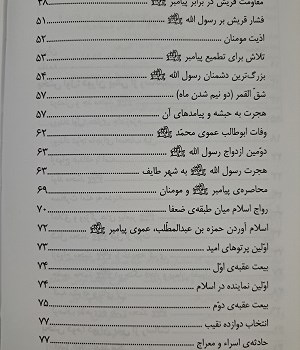 مقاومت قریش در برابر پیامبر ﷺ ........ ۴۸
فشار قریش بر رسول الله ﷺ ........ ۵۱
اذیت مومنان ........ ۵۲
تلاش برای تطمیع پیامبر ﷺ ........ ۵۳
بزرگ‌ترین دشمنان رسول الله ﷺ ........ ۵۴
شقّ القمر (دو نیم شدن ماه) ........ ۵۷
هجرت به حبشه و پیامدهای آن ........ ۵۷
وفات ابوطالب عموی محمّد ﷺ ........ ۶۲
دوّمین ازدواج رسول الله ﷺ ........ ۶۳
هجرت رسول الله ﷺ به شهر طایف ........ ۶۳
محاصره‌ی پیامبر ﷺ و مومنان ........ ۶۹
رواج اسلام میان طبقه‌ی ضعفا ........ ۷۰
اسلام آوردن حمزه بن عبدالمطّلب، عموی پیامبر ﷺ ........ ۷۲
اوّلین پرتوهای امید ........ ۷۳
بیعت عقبه‌ی اوّل ........ ۷۴
اوّلین نماینده در اسلام ........ ۷۴
بیعت عقبه‌ی دوّم ........ ۷۵
انتخاب دوازده نقیب ........ ۷۷
حادثه‌ی اسراء و معراج ........ ۷۷